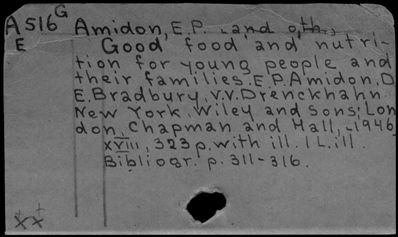 A516 G Amidon, E.P. and oth.,
E Good food and nutri-
tion for young people and
their families. E.P. Amidon, D.
E. Bradbury, V.V. Drenckhahn.
New York, Wiley and Sons; Lon
don, Chapman and Hall, 1946.
xviii, 323 p. with ill. 1 L. ill.
Bibliogr. p. 311-316.
xx